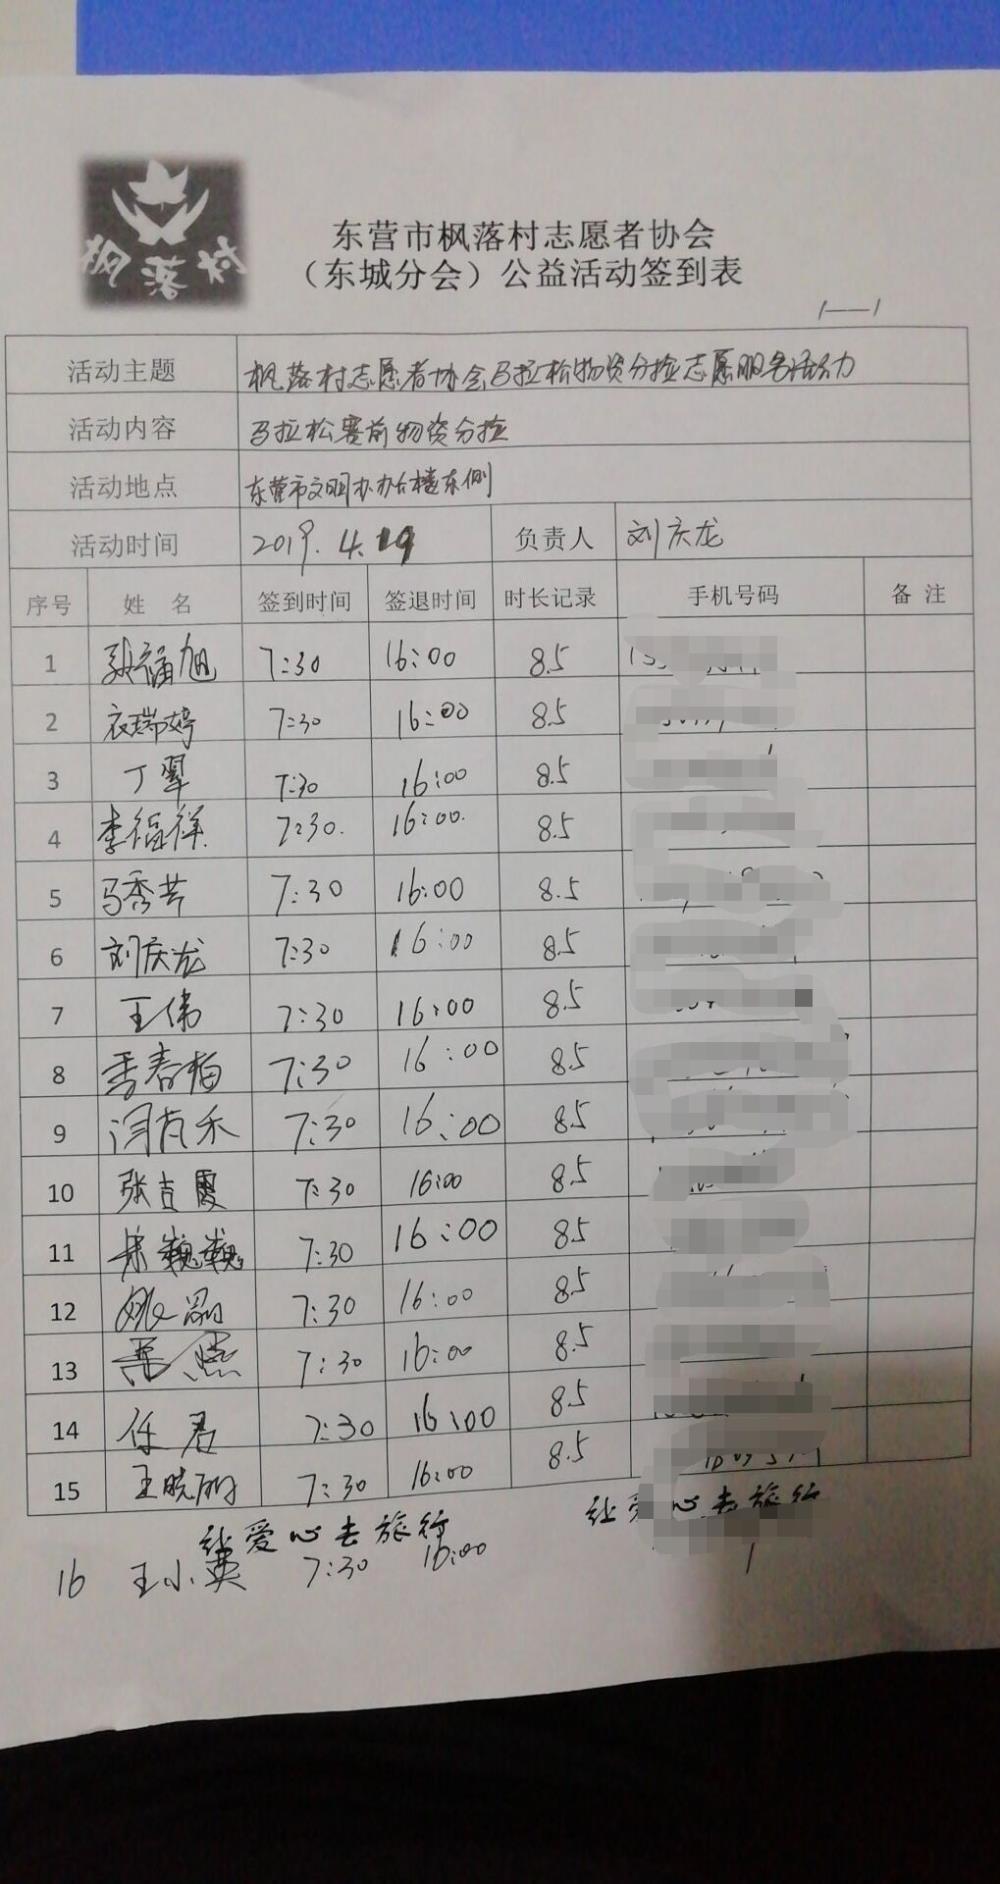 枫落村
东营市枫落村志愿者协会
（东城分会）公益活动签到表
1——1
活动主题 枫落村志愿者协会马拉松物资分拣志愿服务活动
活动内容 马拉松赛前物资分拣
活动地点 东营市文明办办公楼东侧
活动时间 2019.4.19 负责人 刘庆龙
序号 姓 名 签到时间 签退时间 时长记录 手机号码 备 注
1 福旭 7:30 16:00 8.5
2 衣瑞婷 7:30 16:00 8.5
3 丁翠 7:30 16:00 8.5
4 李福祥 7:30. 16:00. 8.5
5 马秀芳 7:30 16:00 8.5
6 刘庆龙 7:30 16:00 8.5
7 王伟 7:30 16:00 8.5
8 春梅 7:30 16:00 8.5
9 7:30 16:00 8.5
10 张吉霞 7:30 16:00 8.5
11 巍巍 7:30 16:00 8.5
12 7:30 16:00 8.5
13 7:30 16:00 8.5
14 任君 7:30 16:00 8.5
15 王晓丽 7:30 16:00 8.5
让爱心去旅行 让爱心去旅行
16 王小英 7:30 16:00